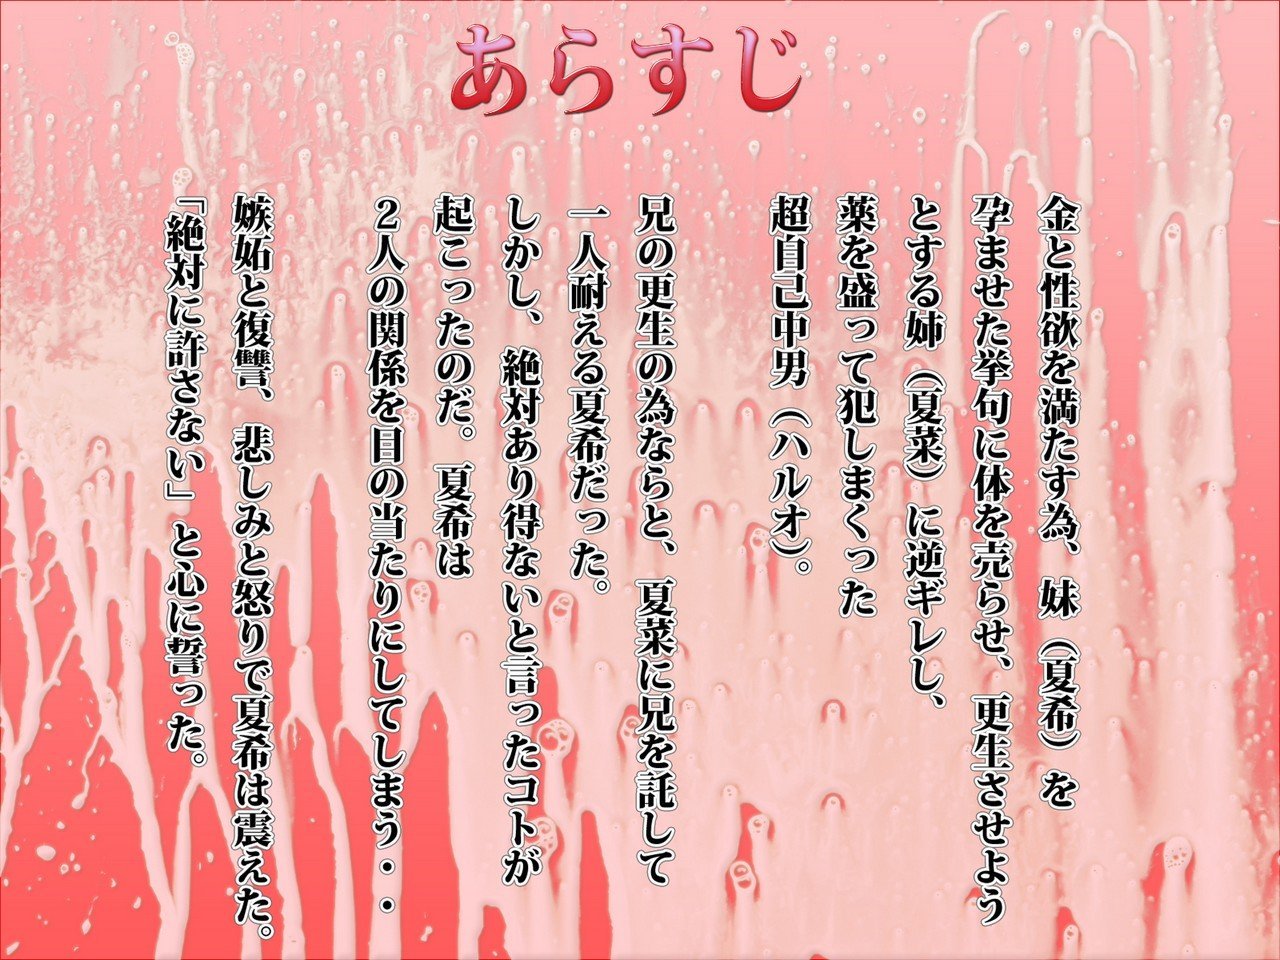 あらすじ
金と性欲を満たす為、妹（夏希）を
孕ませた挙句に体を売らせ、更生させよう
とする姉（夏菜）に逆ギレし、
薬を盛って犯しまくった
超自己中男（ハルオ）。
兄の更生の為ならと、夏菜に兄を託して
一人耐える夏希だった。
しかし、絶対あり得ないと言ったコトが
起こったのだ。夏希は
２人の関係を目の当たりにしてしまう・・
嫉妬と復讐、悲しみと怒りで夏希は震えた。
「絶対に許さない」と心に誓った。